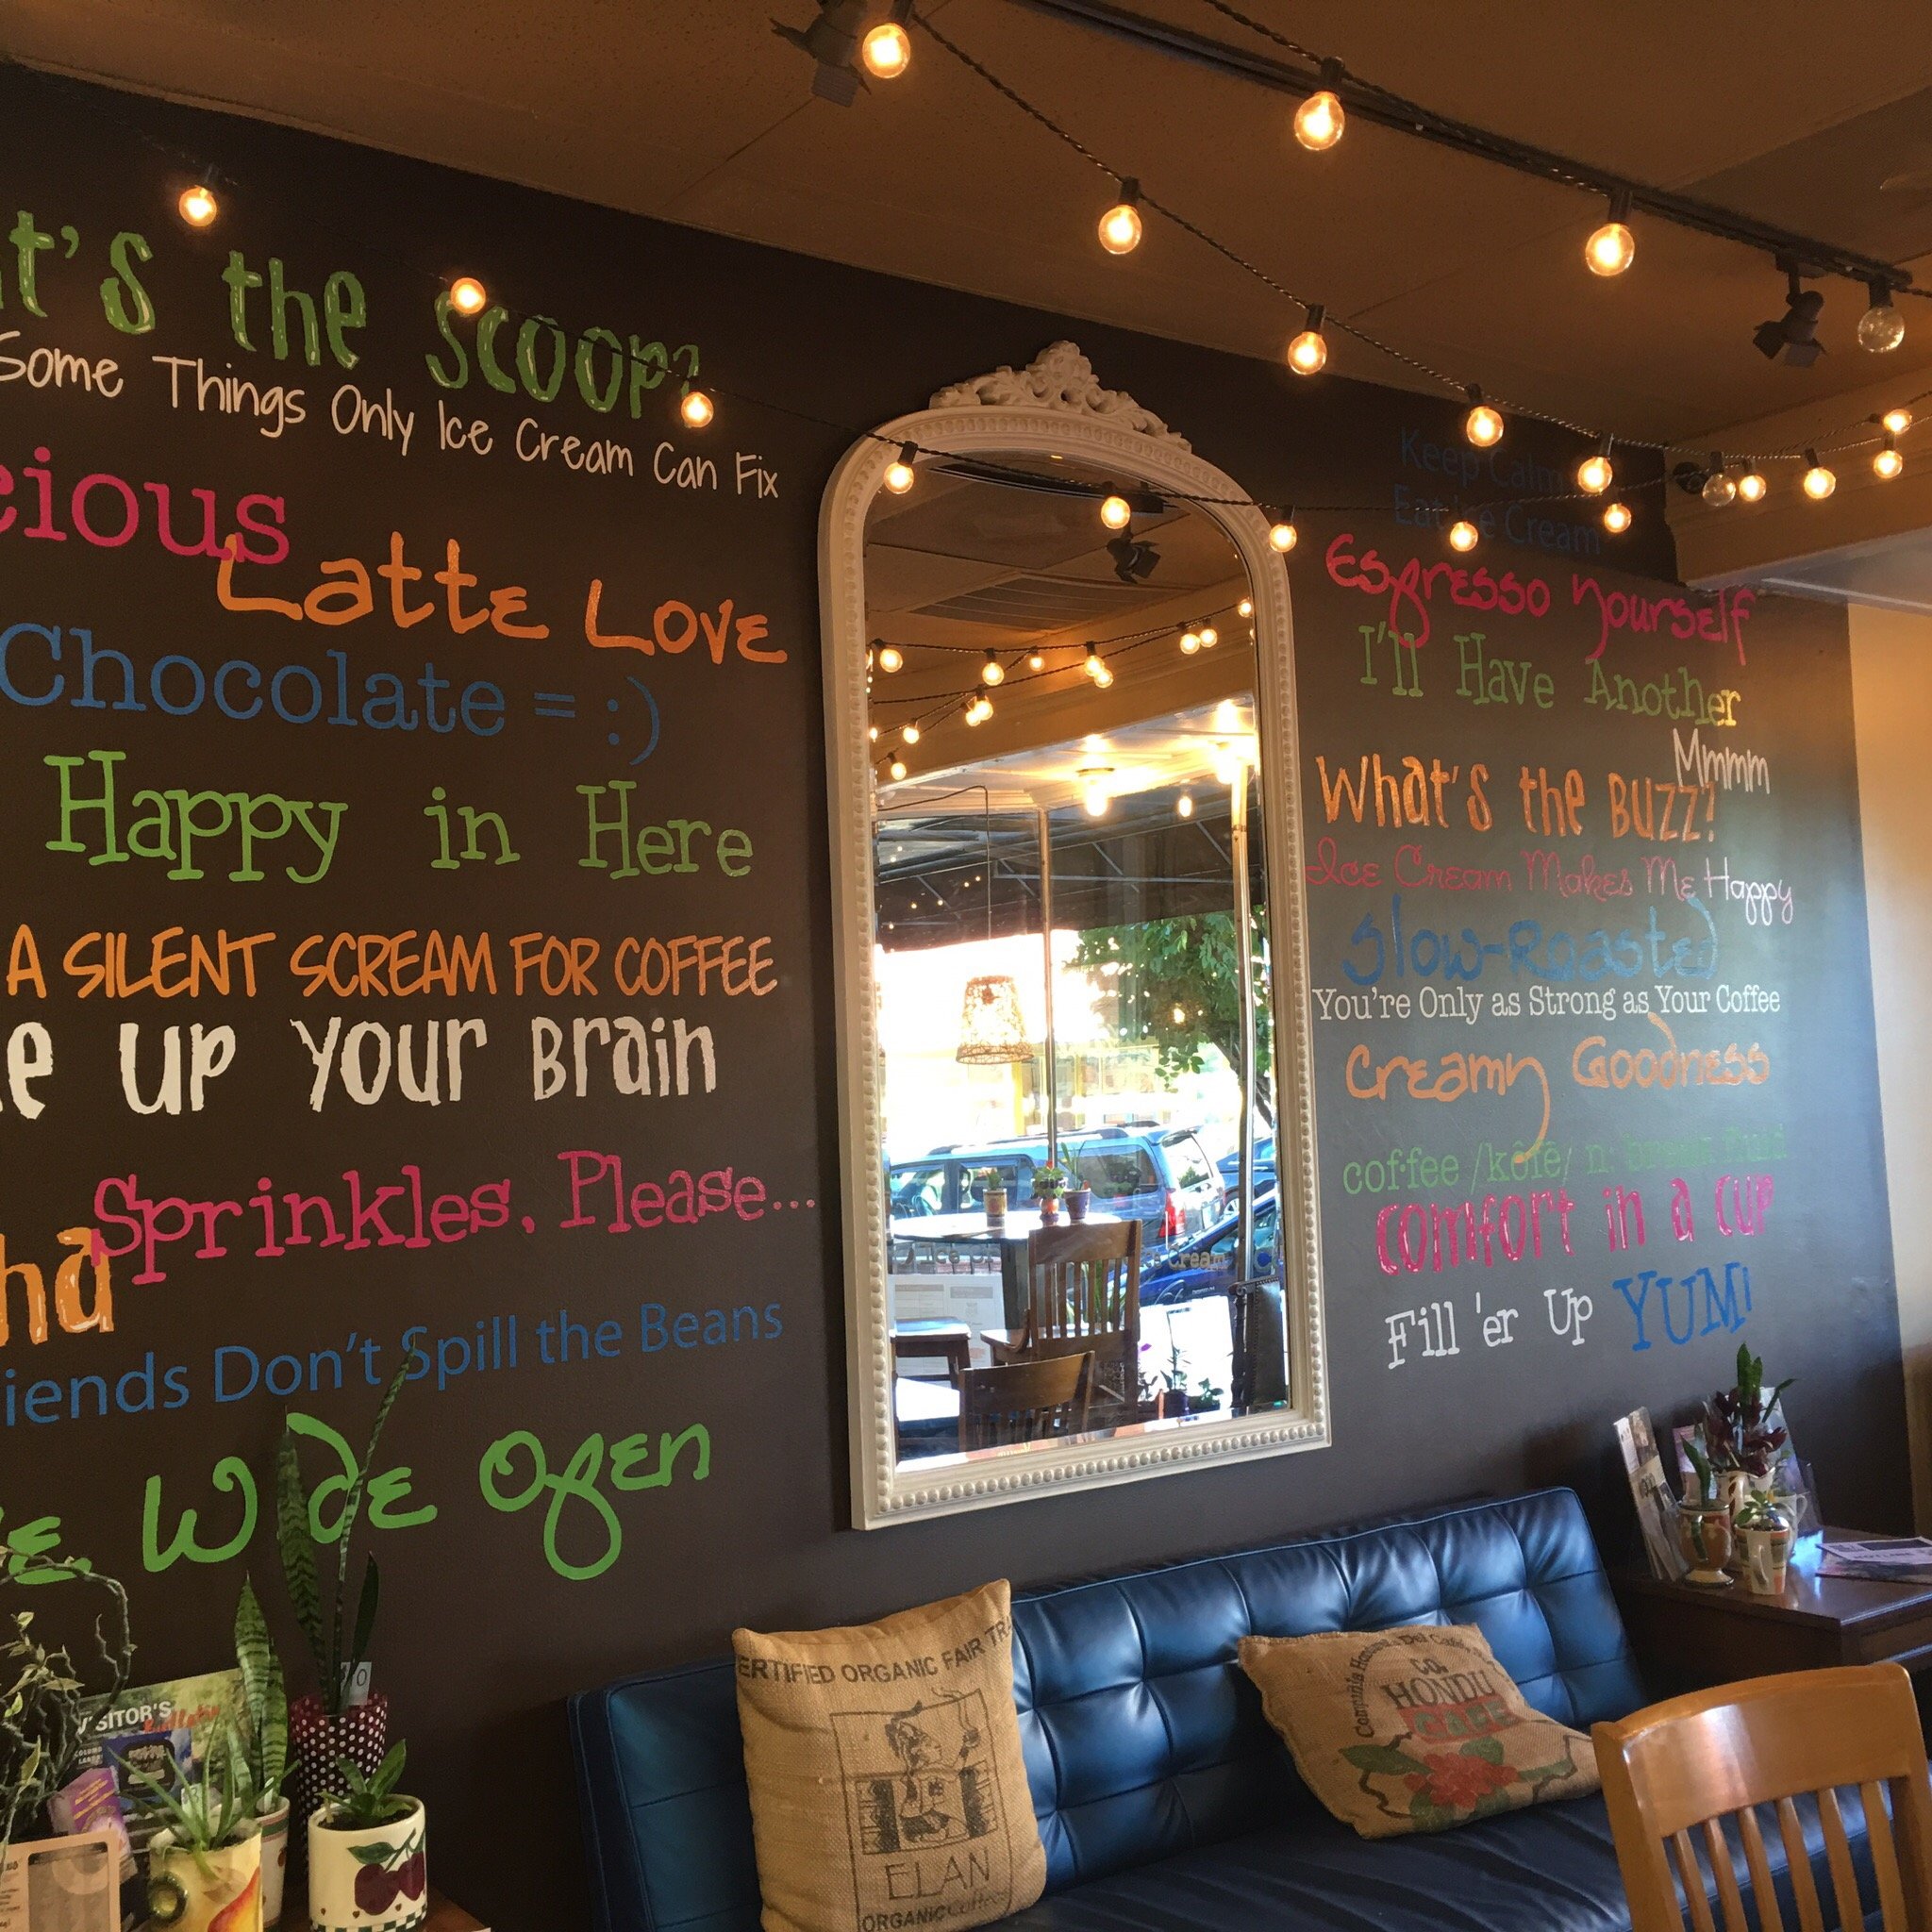 t's the scoop?
Some Things Only Ice Cream Can Fix
cious
Latte Love
Chocolate = :)
Happy in Here
A SILENT SCREAM FOR COFFEE
e up your Brain
Sprinkles, Please...
ha
iends Don't Spill the Beans
e, Wide Open
Keep Calm
Eat Ice Cream
Espresso Yourself
I'll Have Another
Mmmm
What's the Buzz?
Ice Cream Makes Me Happy
Slow-Roasted
You're Only as Strong as Your Coffee
Creamy Goodness
cof·fee /kôfē/ n. break fluid
Comfort in a Cup
Fill 'er Up YUM!
ERTIFIED ORGANIC FAIR TRA
ELAN
ORGANIC Coffees
HONDU
CAFE
VISITOR'S
Bulletin